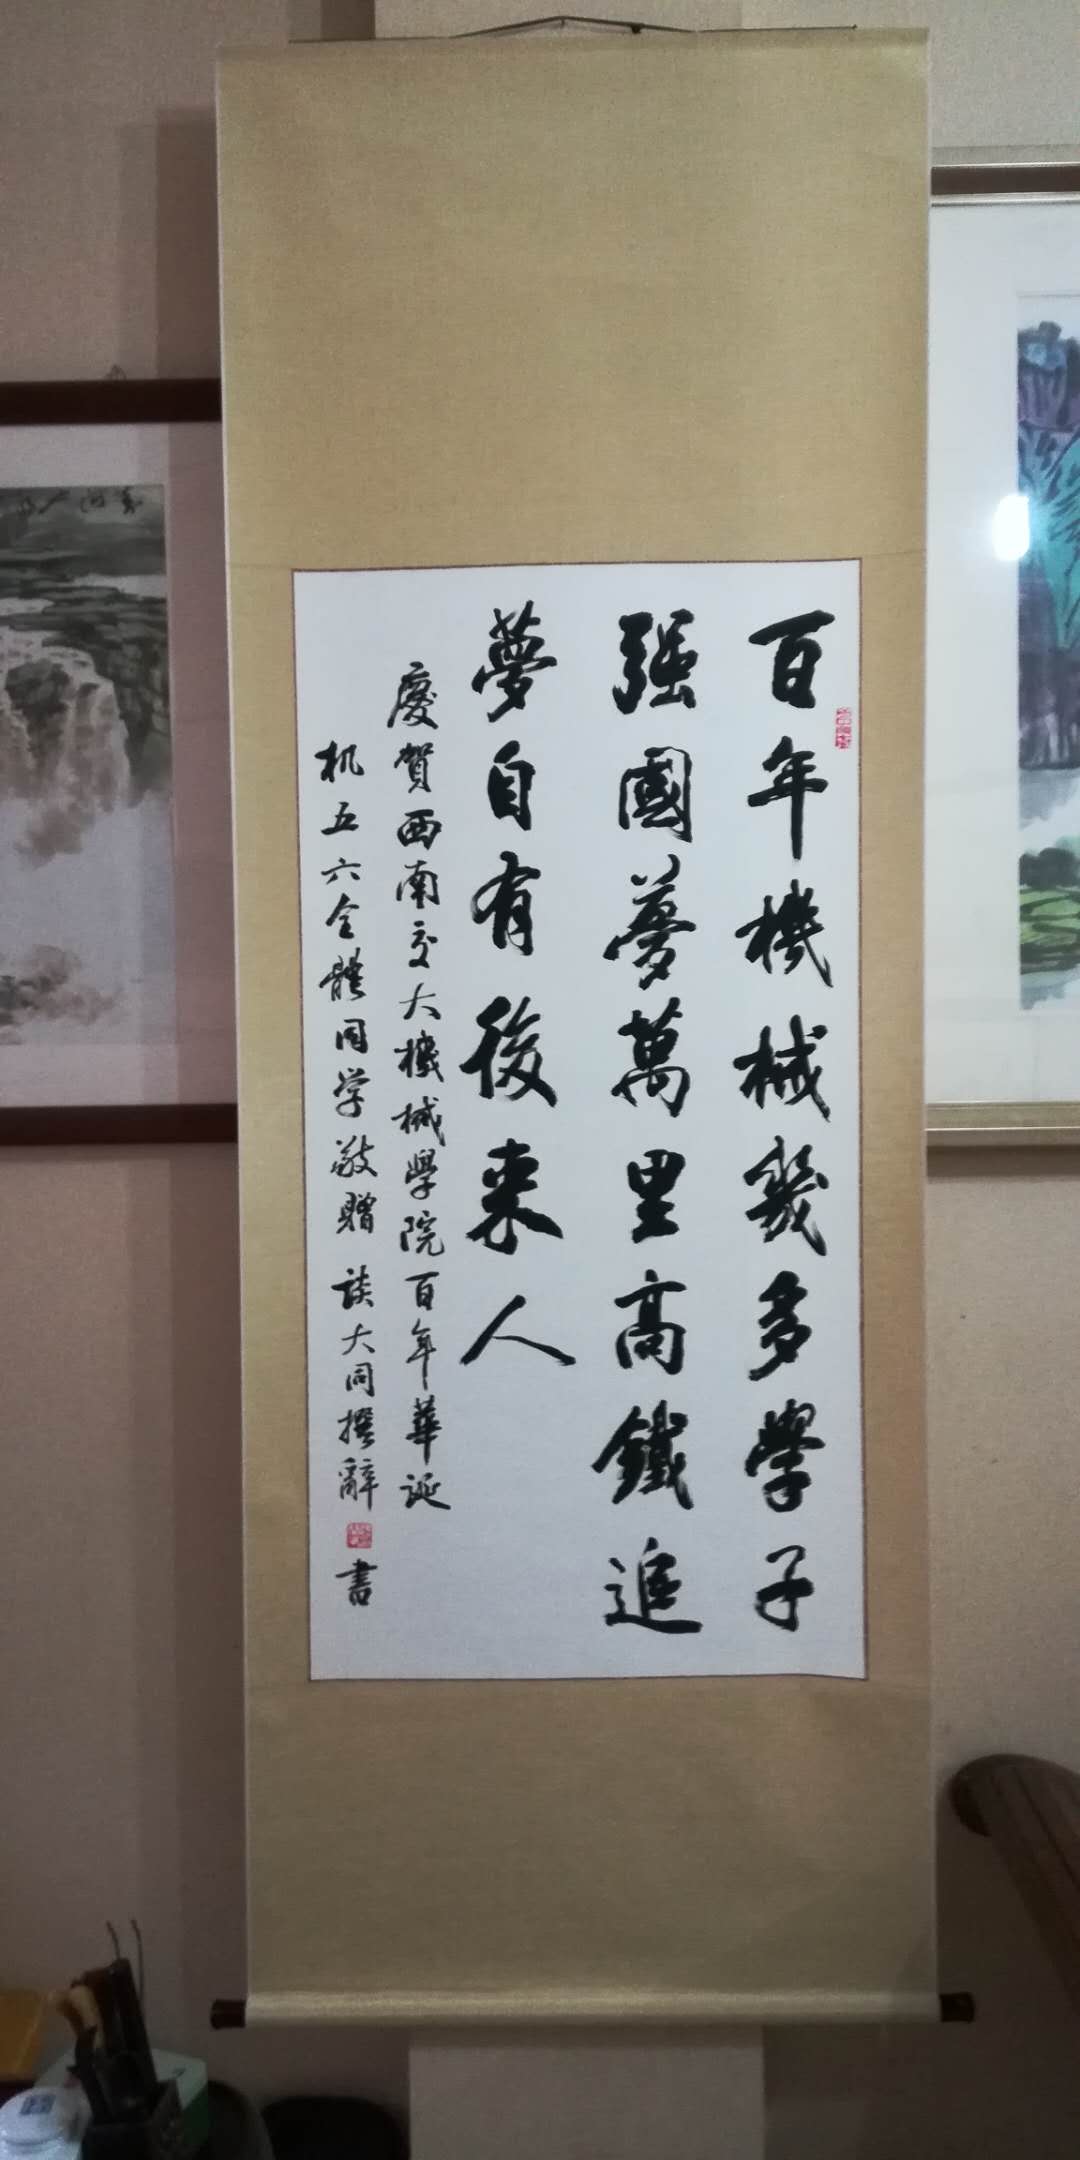 百年機械幾多學子
强國夢萬里高鐵追
夢自有後来人
慶賀西南交大機械學院百年華誕
机五六全體同学敬贈 談大同撰辭 書